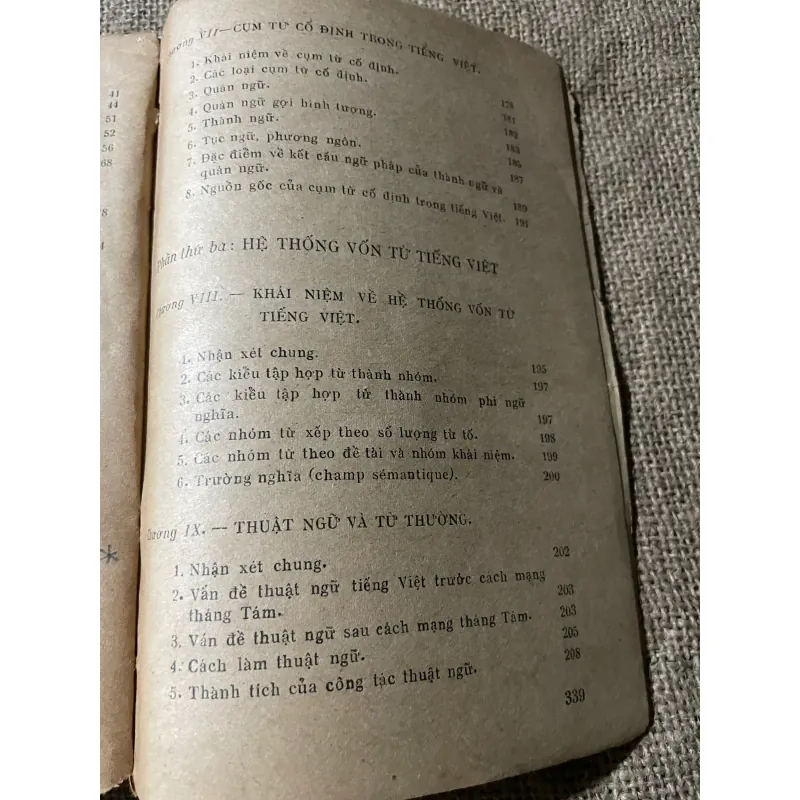 41
44
51
52
56
68
8
4
*
VII — CỤM TỪ CỐ ĐỊNH TRONG TIẾNG VIỆT.
1. Khái niệm về cụm từ cố định.
2. Các loại cụm từ cố định. 178
3. Quán ngữ. 181
4. Quán ngữ gợi hình tượng. 182
5. Thành ngữ. 183
6. Tục ngữ, phương ngôn. 185
7. Đặc điểm về kết cấu ngữ pháp của thành ngữ và 187
quán ngữ. 189
8. Nguồn gốc của cụm từ cố định trong tiếng Việt. 191
Phần thứ ba: HỆ THỐNG VỐN TỪ TIẾNG VIỆT
Chương VIII. — KHÁI NIỆM VỀ HỆ THỐNG VỐN TỪ
TIẾNG VIỆT.
1. Nhận xét chung. 195
2. Các kiểu tập hợp từ thành nhóm. 197
3. Các kiểu tập hợp từ thành nhóm phi ngữ
nghĩa. 197
4. Các nhóm từ xếp theo số lượng từ tố. 198
5. Các nhóm từ theo đề tài và nhóm khái niệm. 199
6. Trường nghĩa (champ sémantique). 200
Chương IX. — THUẬT NGỮ VÀ TỪ THƯỜNG.
1. Nhận xét chung. 202
2. Vấn đề thuật ngữ tiếng Việt trước cách mạng
tháng Tám. 203
3. Vấn đề thuật ngữ sau cách mạng tháng Tám. 203
4. Cách làm thuật ngữ. 205
5. Thành tích của công tác thuật ngữ. 208
339